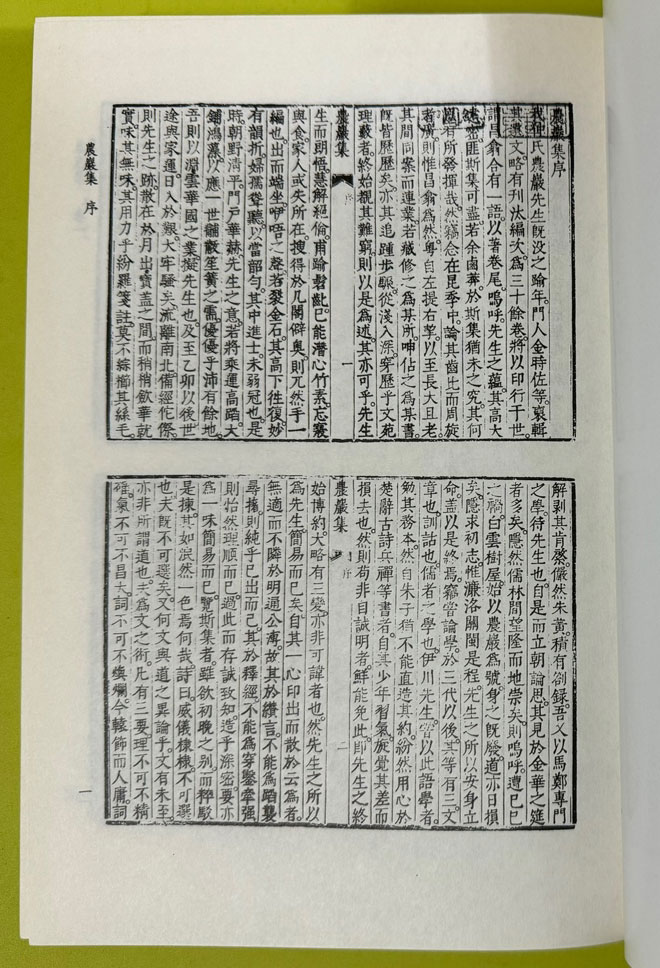 農巖集序
我仲氏農巖先生旣没之踰年。門人金時佐等。裒輯
其遺文。略有刊汰編次。爲三十餘卷。將以印行于世。
謂昌翕合有一語。以著卷尾。嗚呼。先生之蘊。其高大
邃密。匪斯集可盡。若余鹵莽。於斯集猶未之究。其何
以有所發揮哉。然竊念在昆季中。論其齒比而周旋
者廣則惟昌翕爲然。粤自左提右挈。以至長大且老。
其間同案而連業。若藏修之爲某所。呻佔之爲某書。
旣皆歷歷矣。亦其追踵步驟。從淺入深。穿歷乎文苑
理藪者。終始覿其難窮。則以是爲述。其亦可乎。先生
農巖集 序 一
生而朗悟。慧解絕倫。甫踰髫齔。已能潛心竹素。忘寢
與食。家人或失所在。搜得於几閣僻奧。則兀然手一
編也。出而端坐。咿唔之聲。若裂金石。其高下往復。妙
有韻折。婦孺聳聽。以當韶勻。其中進士。未弱冠也。是
時。朝野淸平。門戶華赫。先生之意。若將乘運高蹈。大
鋪鴻藻。以應一世黼黻笙簧之需。優優乎沛有餘地。
吾則以淵雲華國之業。擬先生也。及至乙卯以後。世
途與家運。日入於艱。大牢騷矣。流離南北。備經佗傺。
則先生之跡。散在於月出寶蓋之間。而稍稍斂華就
實。味其無味。其用力乎紛羅箋註。莫不綜櫛其絲毛。
解剝其肯綮。儼然朱黃。積有劄錄。吾又以馬鄭專門
之學。待先生也。自是而立朝論思。其見於金華之筵
者多矣。隱然儒林間望隆而地崇矣。則嗚呼。遭己巳
之禍。白雲樹屋。始以農巖爲號。身之旣廢。道亦日損
矣。隱求初志。惟濂洛關閩是程。先生之所以安身立
命。蓋以是終焉。竊嘗論學。於三代以後。其等有三。文
章也。訓詁也。儒者之學也。伊川先生。嘗以此語學者。
勉其務本。然自朱子猶不能直造其約。紛然用心於
楚辭古詩兵禪等書者。自其少年習氣。旋覺其差而
損去也。然則苟非自誠明者。鮮能免此。卽先生之終
農巖集 序 二
始博約。大略有三變。亦非可諱者也。然先生之所以
爲先生。簡易而已矣。自其一心印出而散於云爲者。
無適而不隣於明通公溥。故其於纘言。不能爲蹈襲
尋摘。則純乎己出而已。其於釋經。不能爲穿鑿牽强。
則怡然理順而已。過此而存誠致知。造乎深密。要亦
爲一味簡易而已。覽斯集者。雖欲初晚之別而粹駁
是揀。其如泯然一色焉何哉。詩曰。威儀棣棣。不可選
也。夫旣不可選矣。又何文與道之異論乎。文有未至。
亦非所謂道也。夫爲文之術。凡有三要。理不可不精
確。氣不可不昌大。詞不可不煥爛。今輇飾而人庸。詞
農巖集 序
一